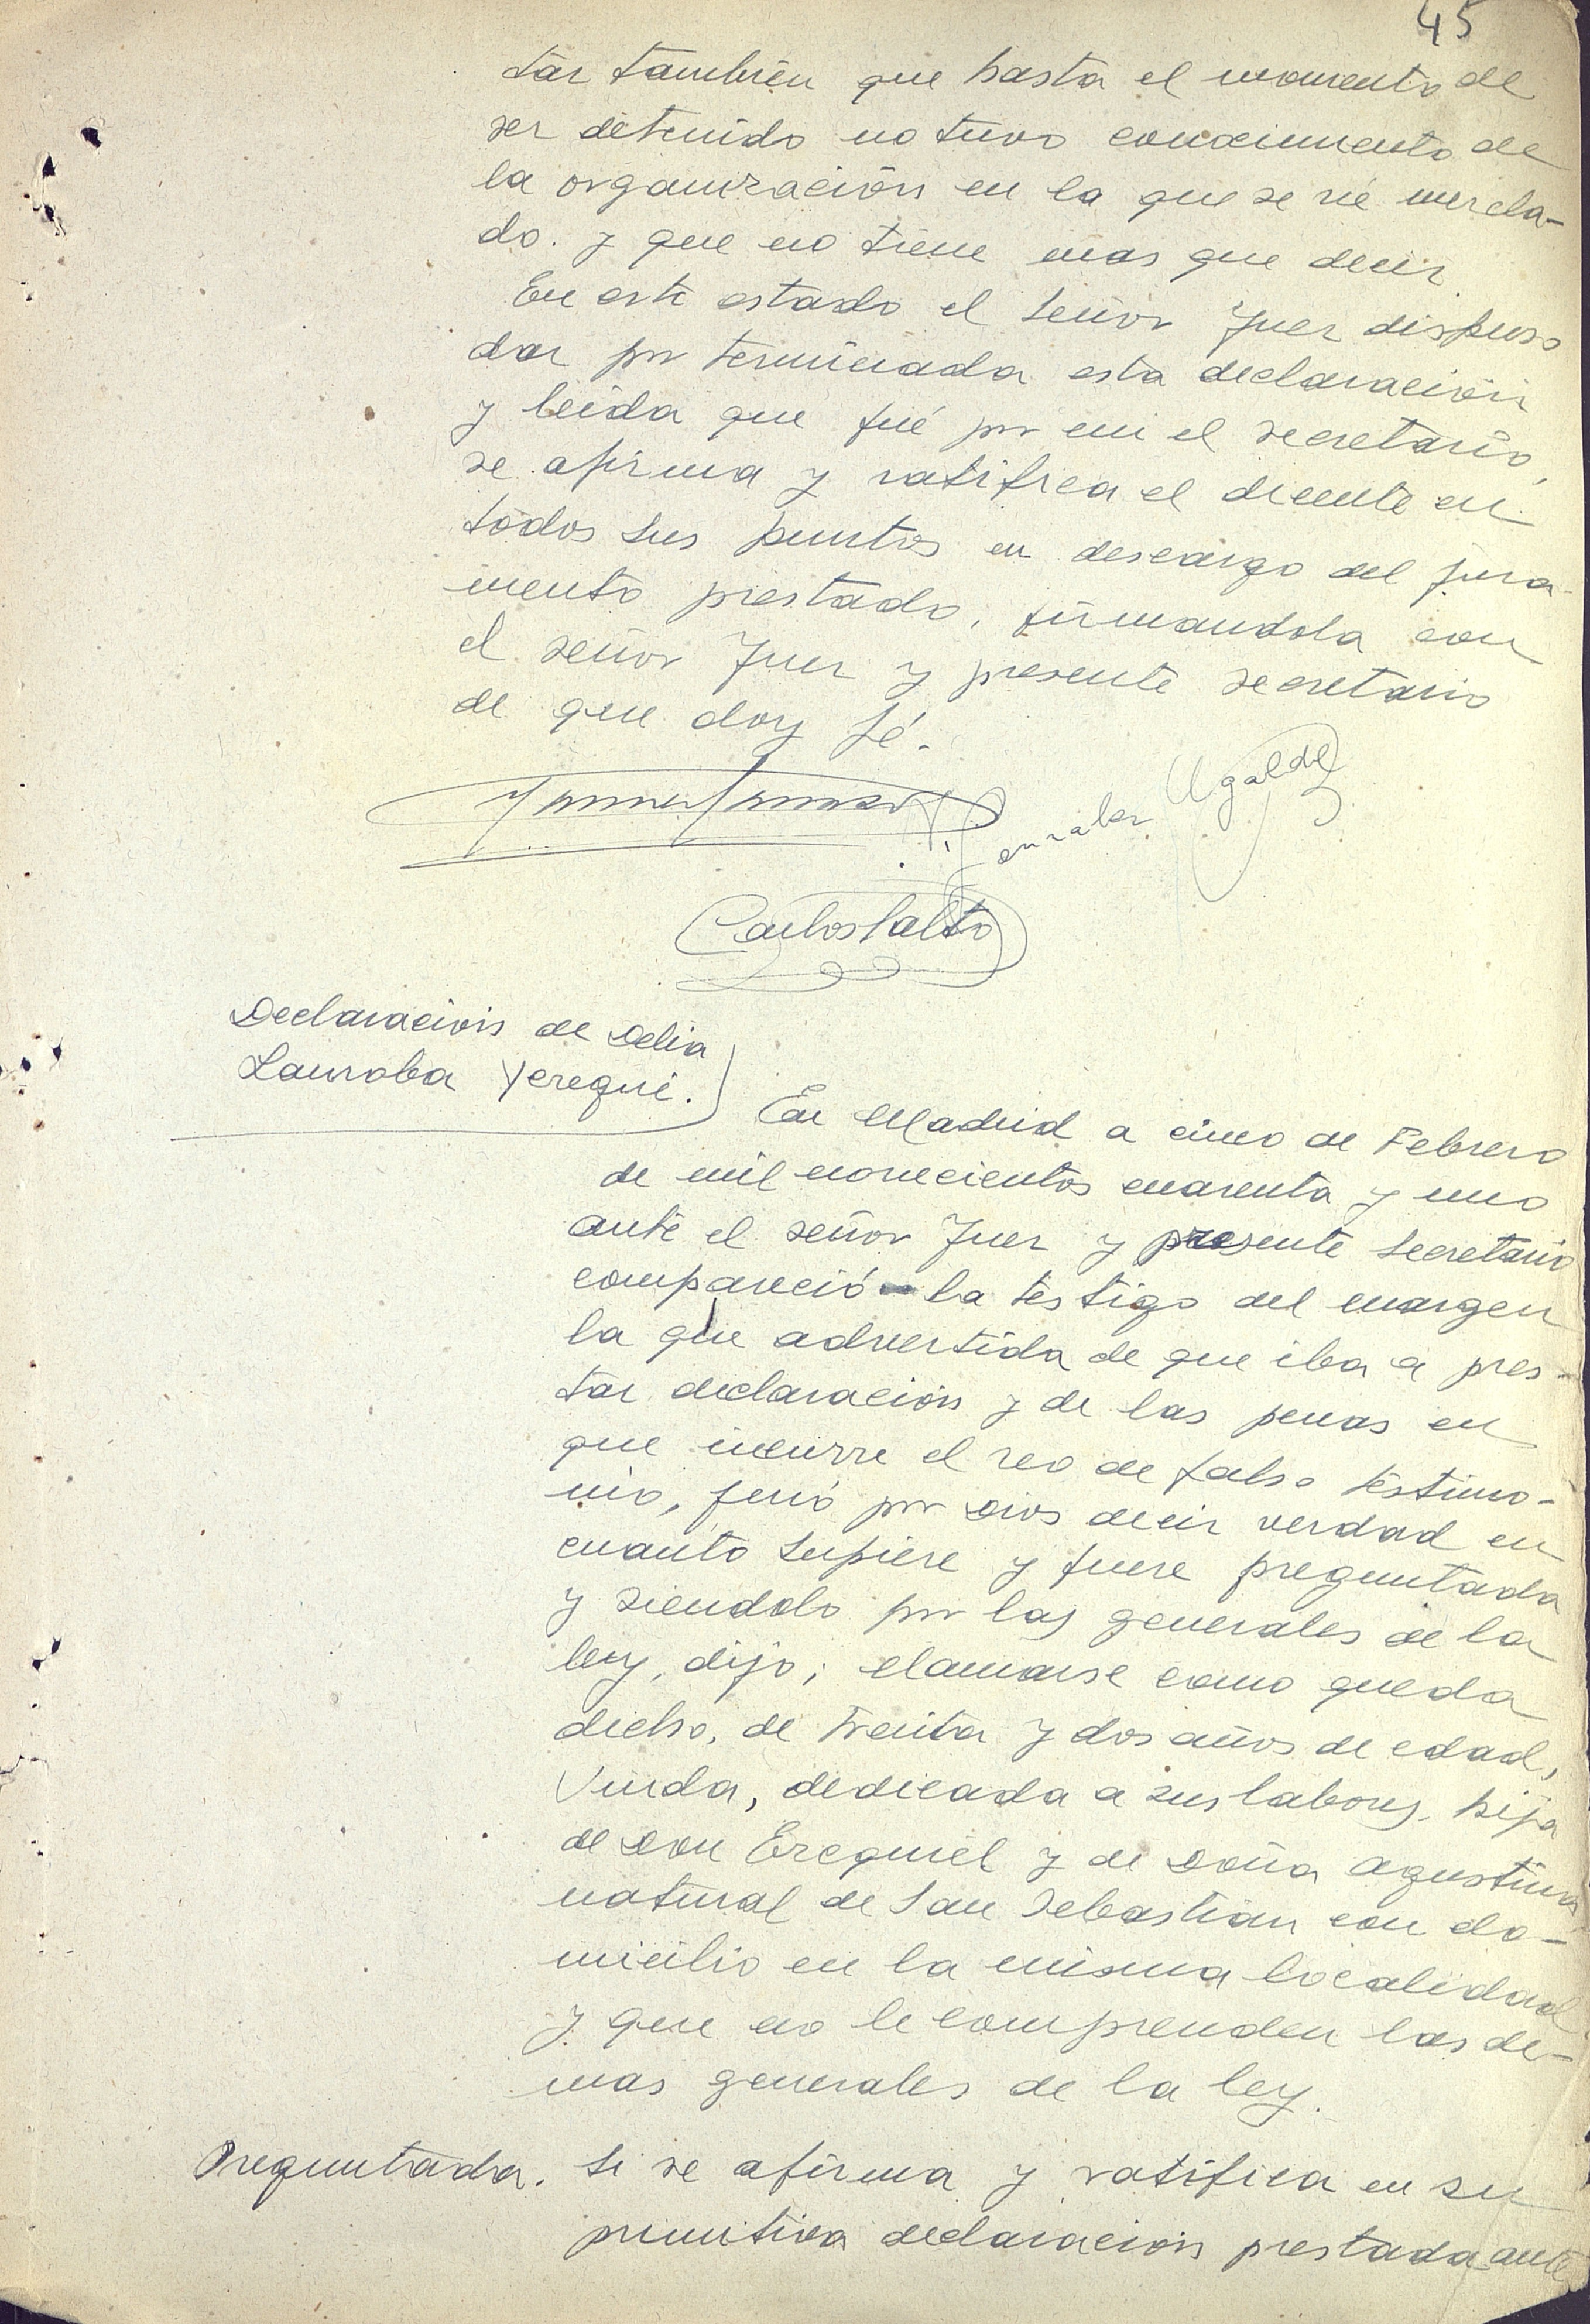 45
tar también que hasta el momento de
ser detenido no tuvo conocimiento de
la organización en la que se vé mezcla-
do. y que no tiene mas que decir
En este estado el Señor Juez dispuso
dar por terminada esta declaración
y leida que fué por mi el secretario,
se afirma y ratifica el dicente en
todos sus puntos en descargo del jura-
mento prestado, firmandola con
el señor Juez y presente secretario
de que doy fé.
Gonzalez Ugalde
Carlos Salto
Declaración de Delia
Lauroba Yeregui.
En Madrid a cinco de Febrero
de mil novecientos cuarenta y uno
ante el señor Juez y presente Secretario
compareció la testigo del margen
la que advertida de que iba a pres-
tar declaración y de las penas en
que incurre el reo de falso testimo-
nio, juró por Dios decir verdad en
cuanto supiere y fuere preguntada
y siendolo por las generales de la
ley, dijo; llamarse como queda
dicho, de treinta y dos años de edad,
Viuda, dedicada a sus labores, hija
de Don Ezequiel y de Doña Agustina,
natural de San Sebastián con do-
micilio en la misma localidad
y que no le comprenden las de-
mas generales de la ley.
Preguntada. Si se afirma y ratifica en su
primitiva declaración prestada ante